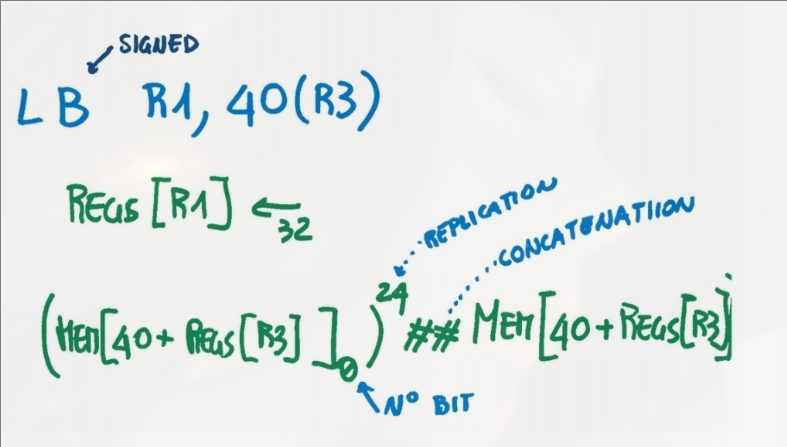 SIGNED
LB R1, 40(R3)
REGS [R1] ←32
REPLICATION
CONCATENATIION
(MEM[40+ REGS [R3] ]0 )24 ## MEM[40+REGS[R3]]
N° BIT